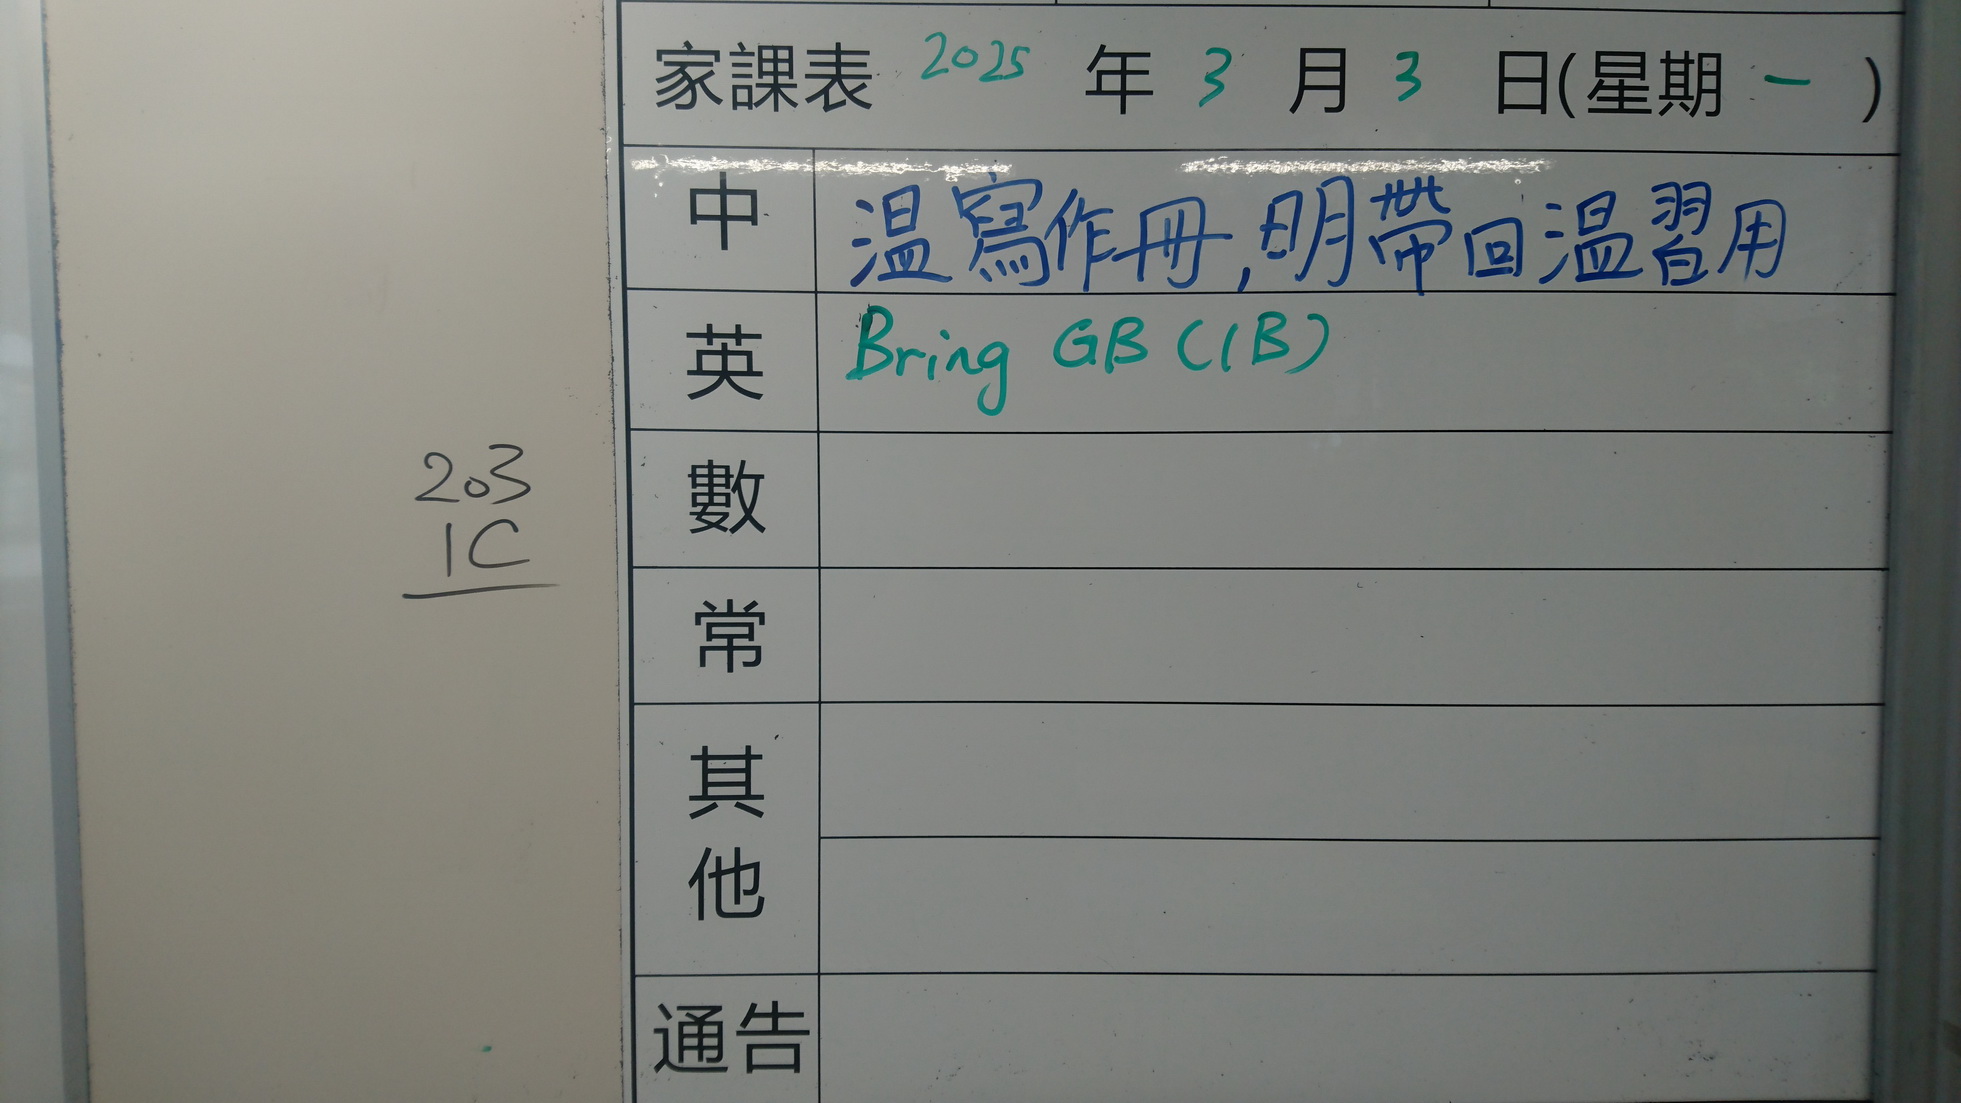 家課表 2025 年 3 月 3 日(星期 一 )
中 温寫作冊,明帶回温習用
英 Bring GB (1B)
數
常
其他
通告
203
1C